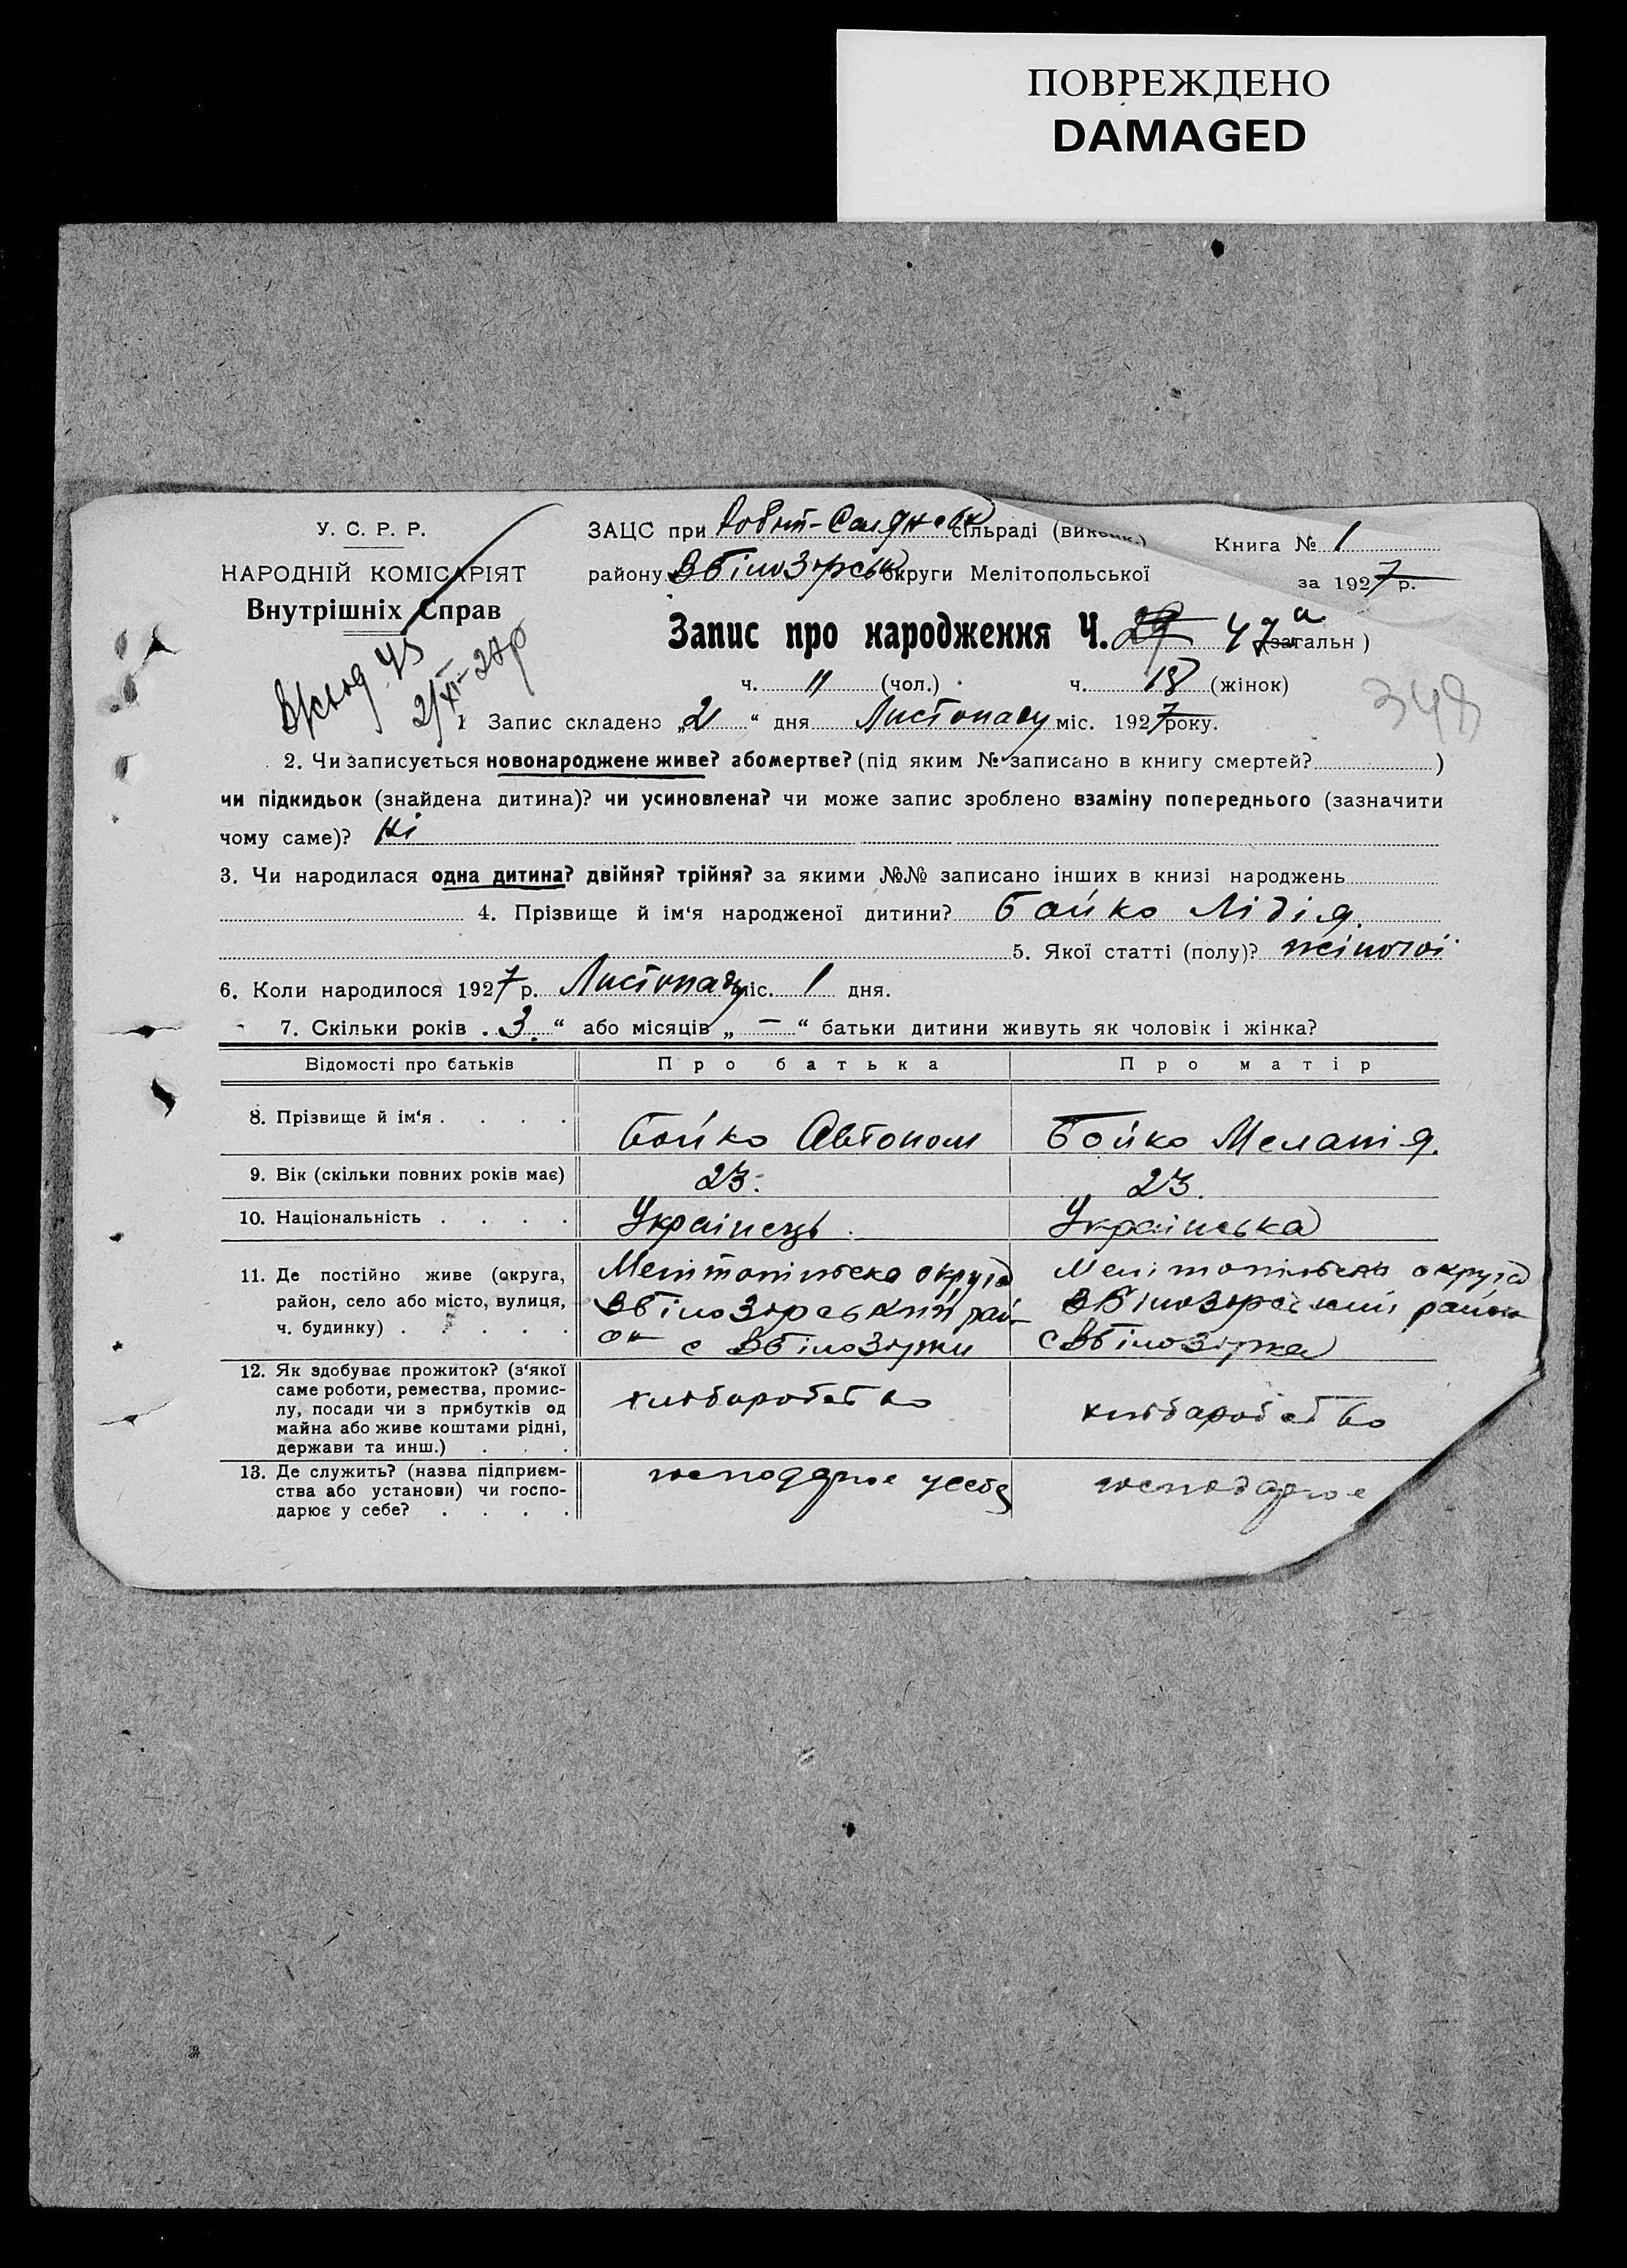 ПОВРЕЖДЕНО
DAMAGED
У. С. Р. Р.
НАРОДНІЙ КОМІСАРІЯТ
Внутрішніх Справ
ЗАЦС при сільраді (викон
району ВбілоЗорськ округи Мелітопольської
Книга № 1
за 1927 р.
Запис про народження Ч. 29 47а (загальн )
ч. 11 (чол.) ч. 18 (жінок)
348
2/XI-27р
1 Запис складено „2“ дня Листопаду міс. 1927 року.
2. Чи записується новонароджене живе? або мертве? (під яким № записано в книгу смертей? )
чи підкидьок (знайдена дитина)? чи усиновлена? чи може запис зроблено взаміну попереднього (зазначити
чому саме)? Ні
3. Чи народилася одна дитина? двійня? трійня? за якими №№ записано інших в книзі народжень
4. Прізвище й ім‘я народженої дитини? Бойко Лідія.
5. Якої статті (полу)? жіночої
6. Коли народилося 1927 р. Листопаду міс. 1 дня.
7. Скільки років „3“ або місяців „ — “ батьки дитини живуть як чоловік і жінка?
Відомості про батьків Про батька Про матір
8. Прізвище й ім‘я . . . . Бойко Автоном Бойко Меланія.
9. Вік (скільки повних років має) 23. 23.
10. Національність . . . . Українець. Українська
11. Де постійно живе (округа, Мелітопільска округа Мелітопільска округа
район, село або місто, вулиця, ВбілоЗорський рай- ВбілоЗорський район
ч. будинку) . . . . . он с ВбілоЗірки с ВбілоЗірка
12. Як здобуває прожиток? (з‘якої
саме роботи, ремества, промис-
лу, посади чи з прибутків од хліборобство хліборобство
майна або живе коштами рідні,
держави та инш.) . . .
13. Де служить? (назва підприєм- господарює у себе господарює
ства або установи) чи госпо-
дарює у себе? . . . .